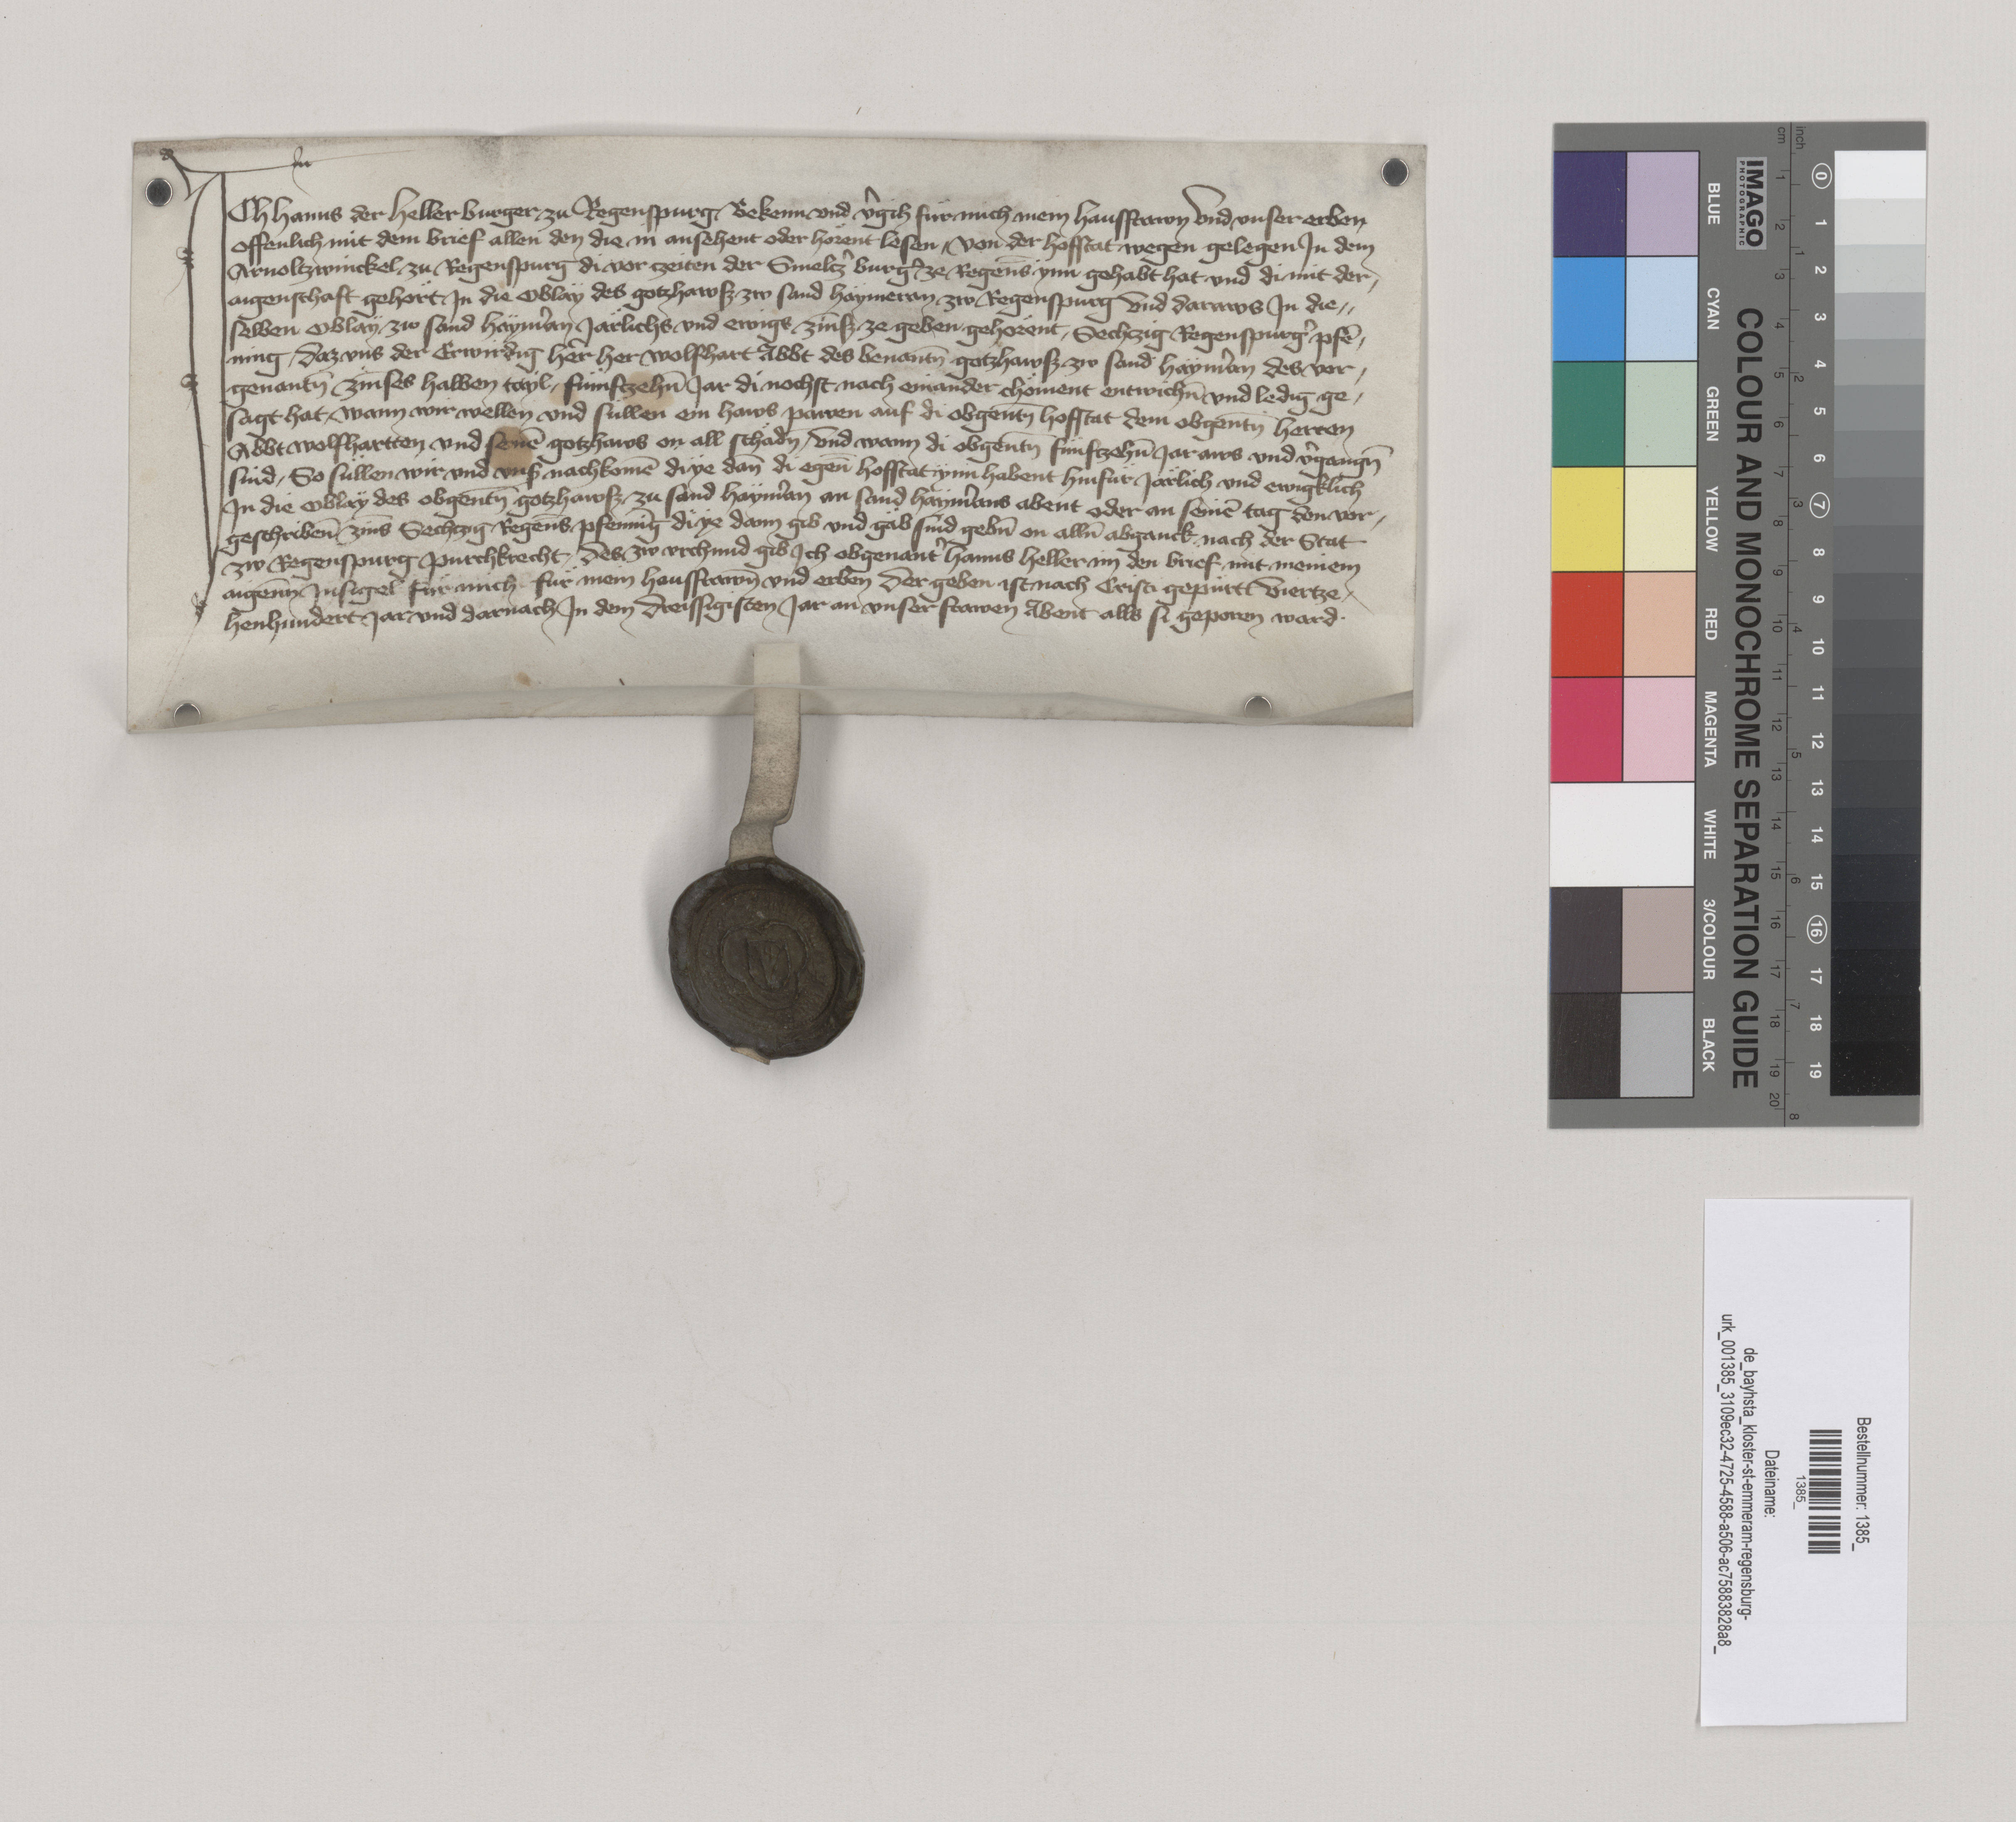 ICh Hanns der Heller burger zu Regenspurg Bekenn vnd v̉gih für mich mein hausfrawn Vnd vnser erben
offenlich mit dem brief allen den die in ansehent oder hörent lesen, von der hofstat wegen gelegen In dem
Arnoltzwinckel zu Regenspurg di vor zeiten der Smeltz̉ burg̉ ze Regenš ynn gehabt hat vnd di mit der,
aigenschaft gehört In die Oblay des gotzhawsz zw sand Haymeran zw Regenspurg Vnd daraws In die,,
selben Oblay zw sand Haym̉an Järlichs vnd ewigs zinsz ze geben gehörent, Sechzig Regenspurg̉ pfē,
ning, Daz vns der Erwirdig her̉ her Wolfhart Abbt des benantn̄ gotzhawsz zw sand Haym̉an des vor,
genantn̄ zinses halben tayl, fünftzehn̄ Jar di nochst nach einander chöment entwichn̄ vnd ledig ge,
sagt hat, wann wir wellen vnd süllen ein haws pawen auf di obgentn̄ hofstat dem obgentn̄ herren
Abbt Wolfhartten vnd seinē gotzhaws on all schädn̄, Vnd wann di obgentn̄ fünftzehn̄ Jar aws vnd v̉gangn̄
sind, So süllen wir vnd vnsz nachkomē di ye dan̄ di egen̄ hofstat ynn habent hinfür Järlich vnd ewigklich
In die Oblay des obgentn̄ gotzhawsz zu sand Haym̉an an sand Haym̉ans abent oder an seinē tag den vor,
geschriben̄ zins Sechtzig Regenš pfenning di ye dann gib vnd gäb sind gebn̄ on alln̄ abganck nach der Stat
zw Regenspurg Purchkrecht, Des zw vrchund gib Ich obgenant̉ Hanns Heller im den brief mit meinem
aigenn̄ Insigel für mich für mein hausfrawn̄ vnd erben Der geben ist nach Cristi gepürtt Viertze,
henhundert Jar vnd darnach In dem Dreissigisten Jar an vnser frawen Abent alls si geporen ward.
IMAGO
PHOTOGRAPHIC
COLOUR AND MONOCHROME SEPARATION GUIDE
BLUE
CYAN
GREEN
YELLOW
RED
MAGENTA
WHITE
3/COLOUR
BLACK
cm
1
2
3
4
5
6
7
8
9
10
11
12
13
14
15
16
17
18
19
20
inch
1
2
3
4
5
6
7
8
0
1
2
3
4
5
6
7
8
9
10
11
12
13
14
15
16
17
18
19
Bestellnummer: 1385_
1385_
Dateiname:
de_bayhsta_kloster-st-emmeram-regensburg-
urk_001385_3109ec32-4725-4588-a506-ac75883828a8_